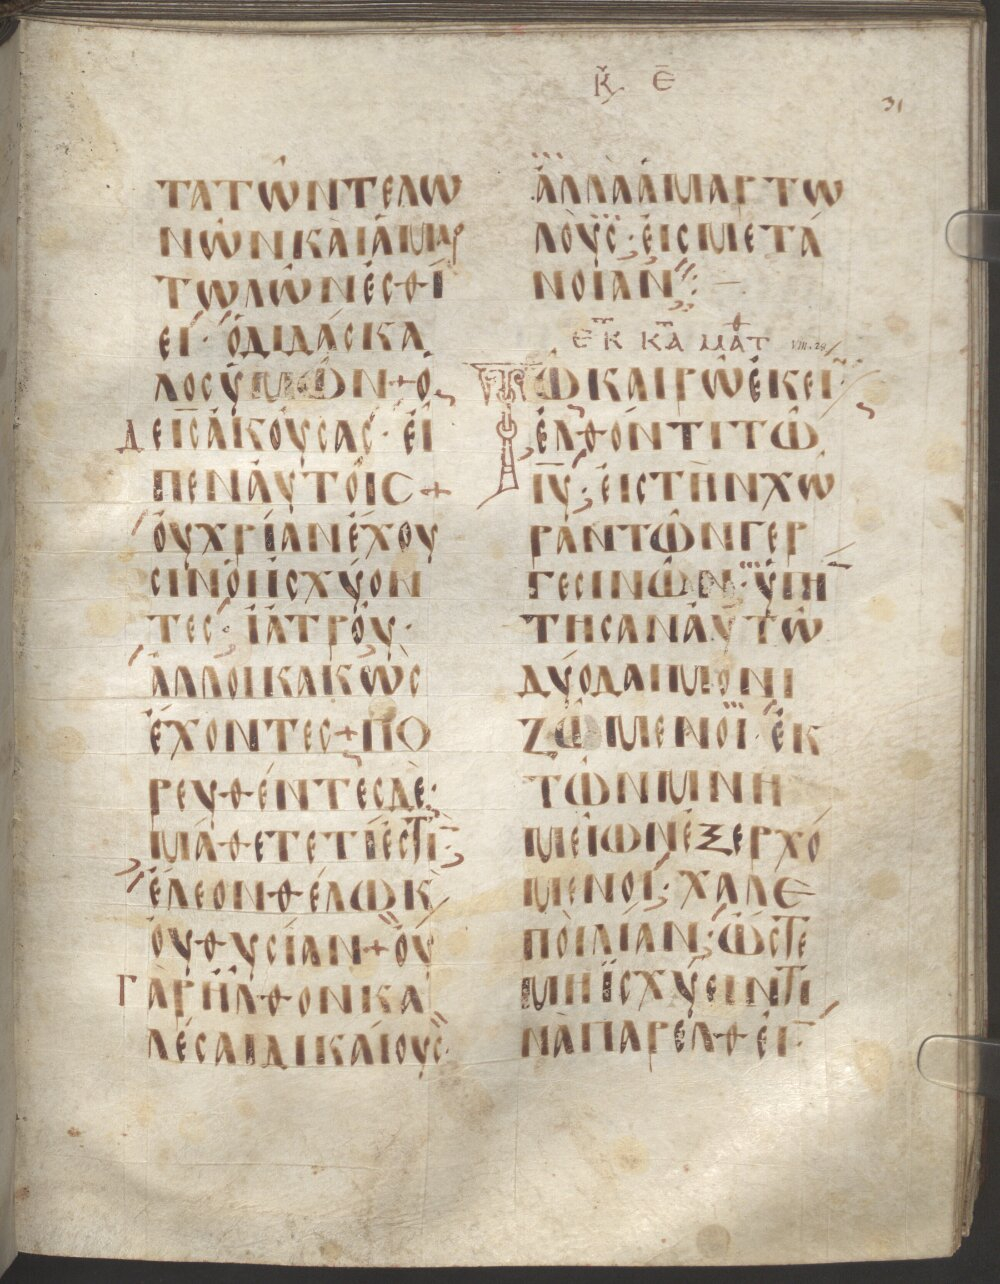 Κ͞Υ Ε͞
31
ΤΑΤΩΝΤΕΛΩ
ΝΩΝΚΑΙΑΜΑΡ
ΤΩΛΩΝΕΣΘΙ
ΕΙ· ΟΔΙΔΑΣΚΑ
ΛΟΣΥΜΩΝ+Ο
ΔΕΙ͞ΣΑΚΟΥΣΑΣ· ΕΙ
ΠΕΝΑΥΤΟΙΣ+
ΟΥΧΡΙΑΝΕΧΟΥ
ΣΙΝΟΙΙΣΧΥΟΝ
ΤΕΣ· ΙΑΤΡΟΥ·
ΑΛΛΟΙΚΑΚΩΣ
ΕΧΟΝΤΕΣ+ΠΟ
ΡΕΥΘΕΝΤΕΣΔΕ·
ΜΑΘΕΤΕΤΙΕΣΤΙ·
ΕΛΕΟΝΘΕΛΩΚ
ΟΥΘΥΣΙΑΝ+ΟΥ
ΓΑΡΗΛΘΟΝΚΑ
ΛΕΣΑΙΔΙΚΑΙΟΥΣ·
ΑΛΛΑΑΜΑΡΤΩ
ΛΟΥΣ· ΕΙΣΜΕΤΑ
ΝΟΙΑΝ:–
ΕΚ ΚΑ ΜΑΤΘ VIII. 28
ΤΩΚΑΙΡΩΕΚΕΙ·
ΕΛΘΟΝΤΙΤΩ
Ι͞Υ· ΕΙΣΤΗΝΧΩ
ΡΑΝΤΩΝΓΕΡ
ΓΕΣΙΝΩΝ· ΥΠΗ
ΤΗΣΑΝΑΥΤΩ
ΔΥΟΔΑΙΜΟΝΙ
ΖΩΜΕΝΟΙ· ΕΚ
ΤΩΝΜΝΗ
ΜΕΙΩΝΕΞΕΡΧΟ
ΜΕΝΟΙ· ΧΑΛΕ
ΠΟΙΛΙΑΝ· ΩΣΤΕ
ΜΗΙΣΧΥΕΙΝΤΙ
ΝΑΠΑΡΕΛΘΕΙ·